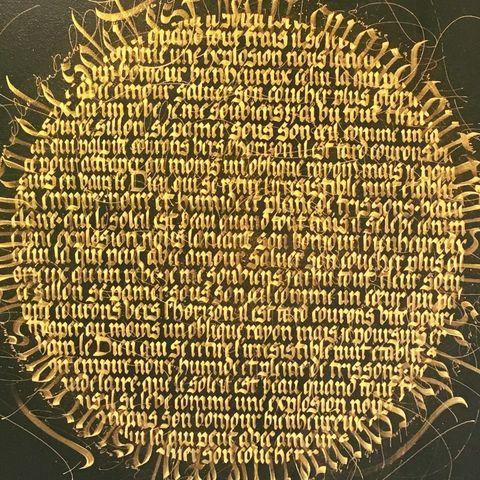 quand tout frais il se lev
comme une explosion nous lancan
son bonjour bienheureux celui la qui pe
avec amour saluer son coucher plus glori
qu'un reve je me souviens j'ai vu tout fleur
source sillon se pamer sous son œil comme un cœ
qui palpite courons vers l'horizon il est tard courons vi
pour attraper au moins un oblique rayon mais je pour
suis en vain le Dieu qui se retire l'irresistible nuit etablit
empire noire humide et pleine de frissons beau
delaire que le soleil est beau quand tout frais il se leve comm
une explosion nous lancant son bonjour bienheureux
celui la qui peut avec amour saluer son coucher plus gl
orieux qu'un reve je me souviens j'ai vu tout fleur sour
ce sillon se pamer sous son œil comme un cœur qui pa
courons vers l'horizon il est tard courons vite pour
traper au moins un oblique rayon mais je poursuis
vain le Dieu qui se retire l'irresistible nuit etablit
son empire noire humide et pleine de frissons
audelaire que le soleil est beau quand tout
frais il se leve comme une explosion nous
lancant son bonjour bienheureux
celui la qui peut avec amour
saluer son coucher